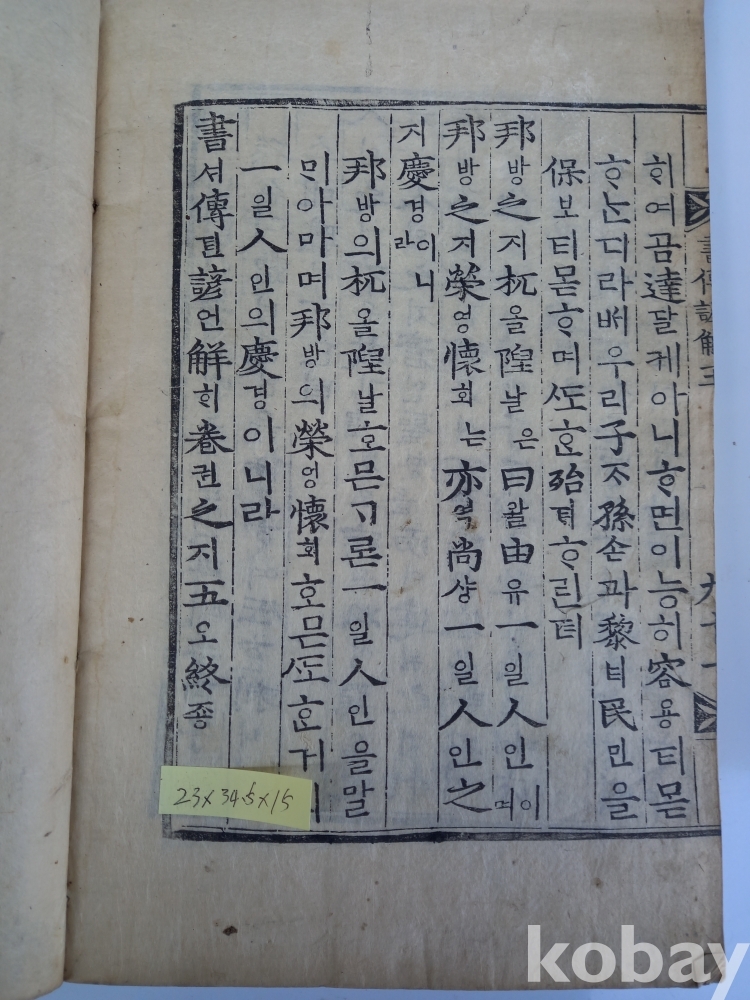 ᄒᆡ여곰達달케아니ᄒᆞ면이능히容용티몯
ᄒᆞᄂᆞᆫ디라ᄡᅥ우리子ᄌᆞ孫손과黎려民민을
保보티몯ᄒᆞ며ᄯᅩᄒᆞᆫ殆ᄐᆡᄒᆞ린뎌
邦방之지杌올隉날은曰왈由유一일人인이며
邦방之지榮영懷회ᄂᆞᆫ亦역尙샹一일人인之
지慶경이니라
邦방의杌올隉날호믄ᄀᆞ론一일人인을말
ᄆᆡ아마며邦방의榮영懷회호믄ᄯᅩᄒᆞᆫ거의
一일人인의慶경이니라
書셔傳뎐諺언解ᄒᆡ卷권之지五오終죵
書傳諺解
23x34.5x15
kobay